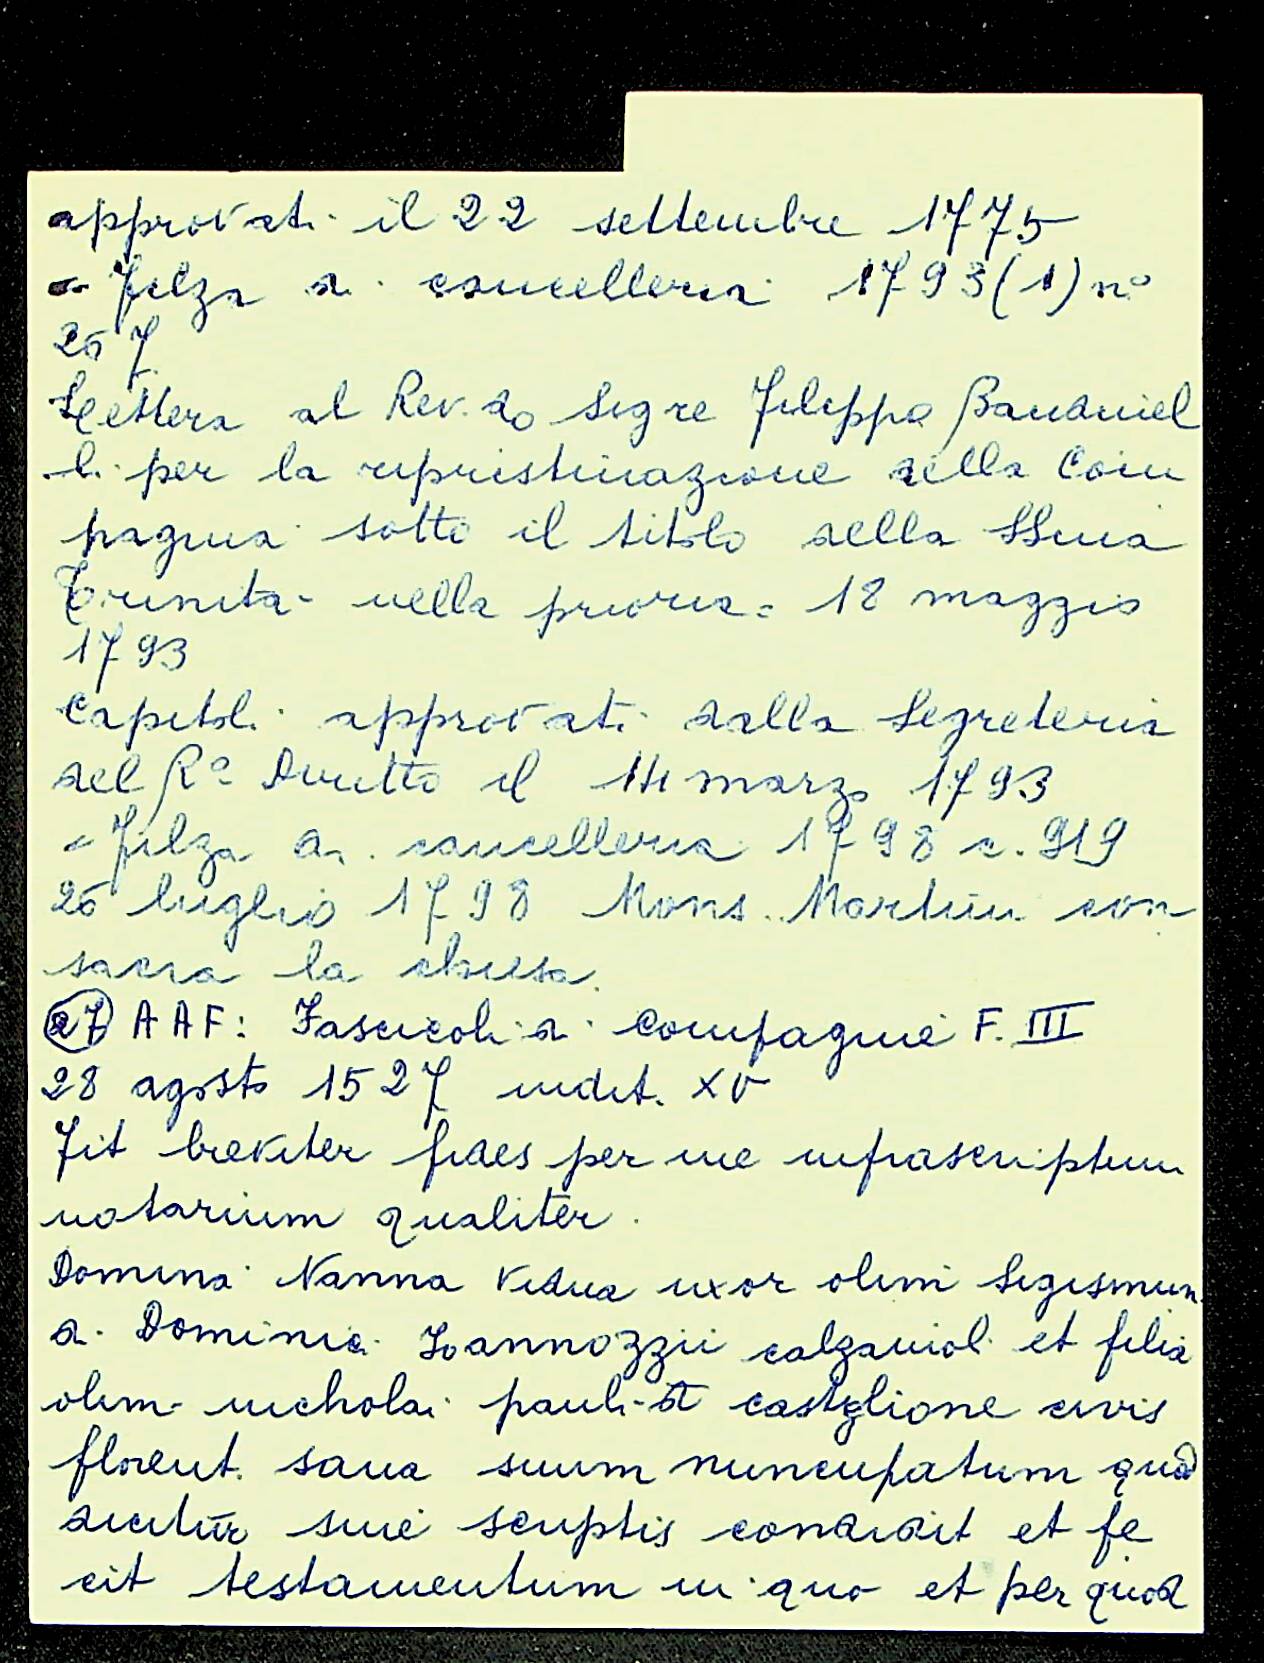 approvati il 22 settembre 1775
- Filza di cancelleria 1793 (1) n°
267
Lettera al Rev.do Sigre Filippo Banduiel
li per la ripristinazione della Com
pagnia sotto il titolo della SSma
Trinita- nella prioria = 18 maggio
1793
Capitoli approvati dalla Segreteria
del R° Diritto il 14 marzo 1793
- Filza di cancelleria 1798 c. 919
26 luglio 1798 Mons. Martini con
sacra la chiesa.
27 AAF: Fascicoli di Compagnie F. III
28 agosto 1527 indit. XV
Fit breviter fides per me infrascriptum
notarium qualiter.
Domina Nanna vidua uxor olim Sigismun
di Dominici Ioannozzii calzaiuoli et filia
olim nicholai pauli di castiglione civis
florent. sana suum nuncupatum quod
dicitur sine scriptis condidit et fe
cit testamentum in quo et per quod